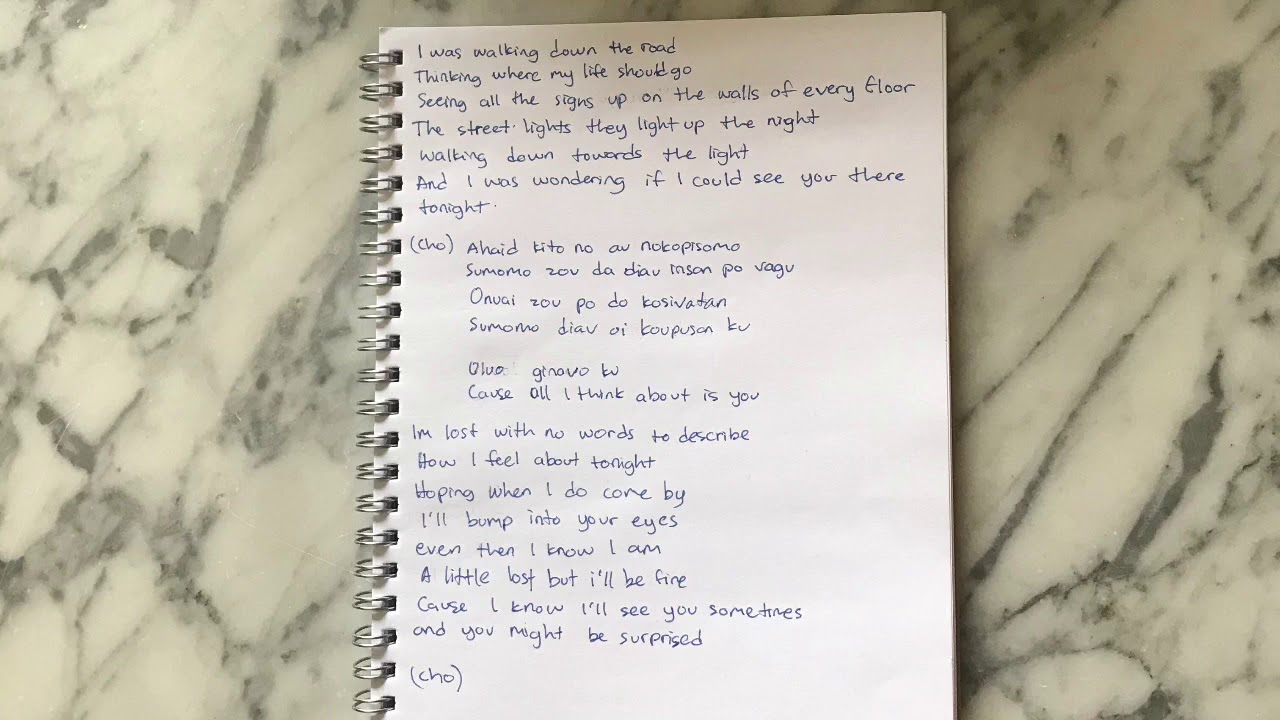 I was walking down the road
Thinking where my life should go
Seeing all the signs up on the walls of every floor
The street lights they light up the night
walking down towards the light
And I was wondering if I could see you there
tonight.
(cho) Ahaid kito no au nokopisomo
Sumomo zou da diau insan po vagu
Onuai zou po do kosivatan
Sumomo diau oi koupusan ku
Oluo ginavo ku
Cause all I think about is you
Im lost with no words to describe
How I feel about tonight
Hoping when I do come by
I'll bump into your eyes
even then I know I am
A little lost but i'll be fine
Cause I know I'll see you sometimes
and you might be surprised
(cho)